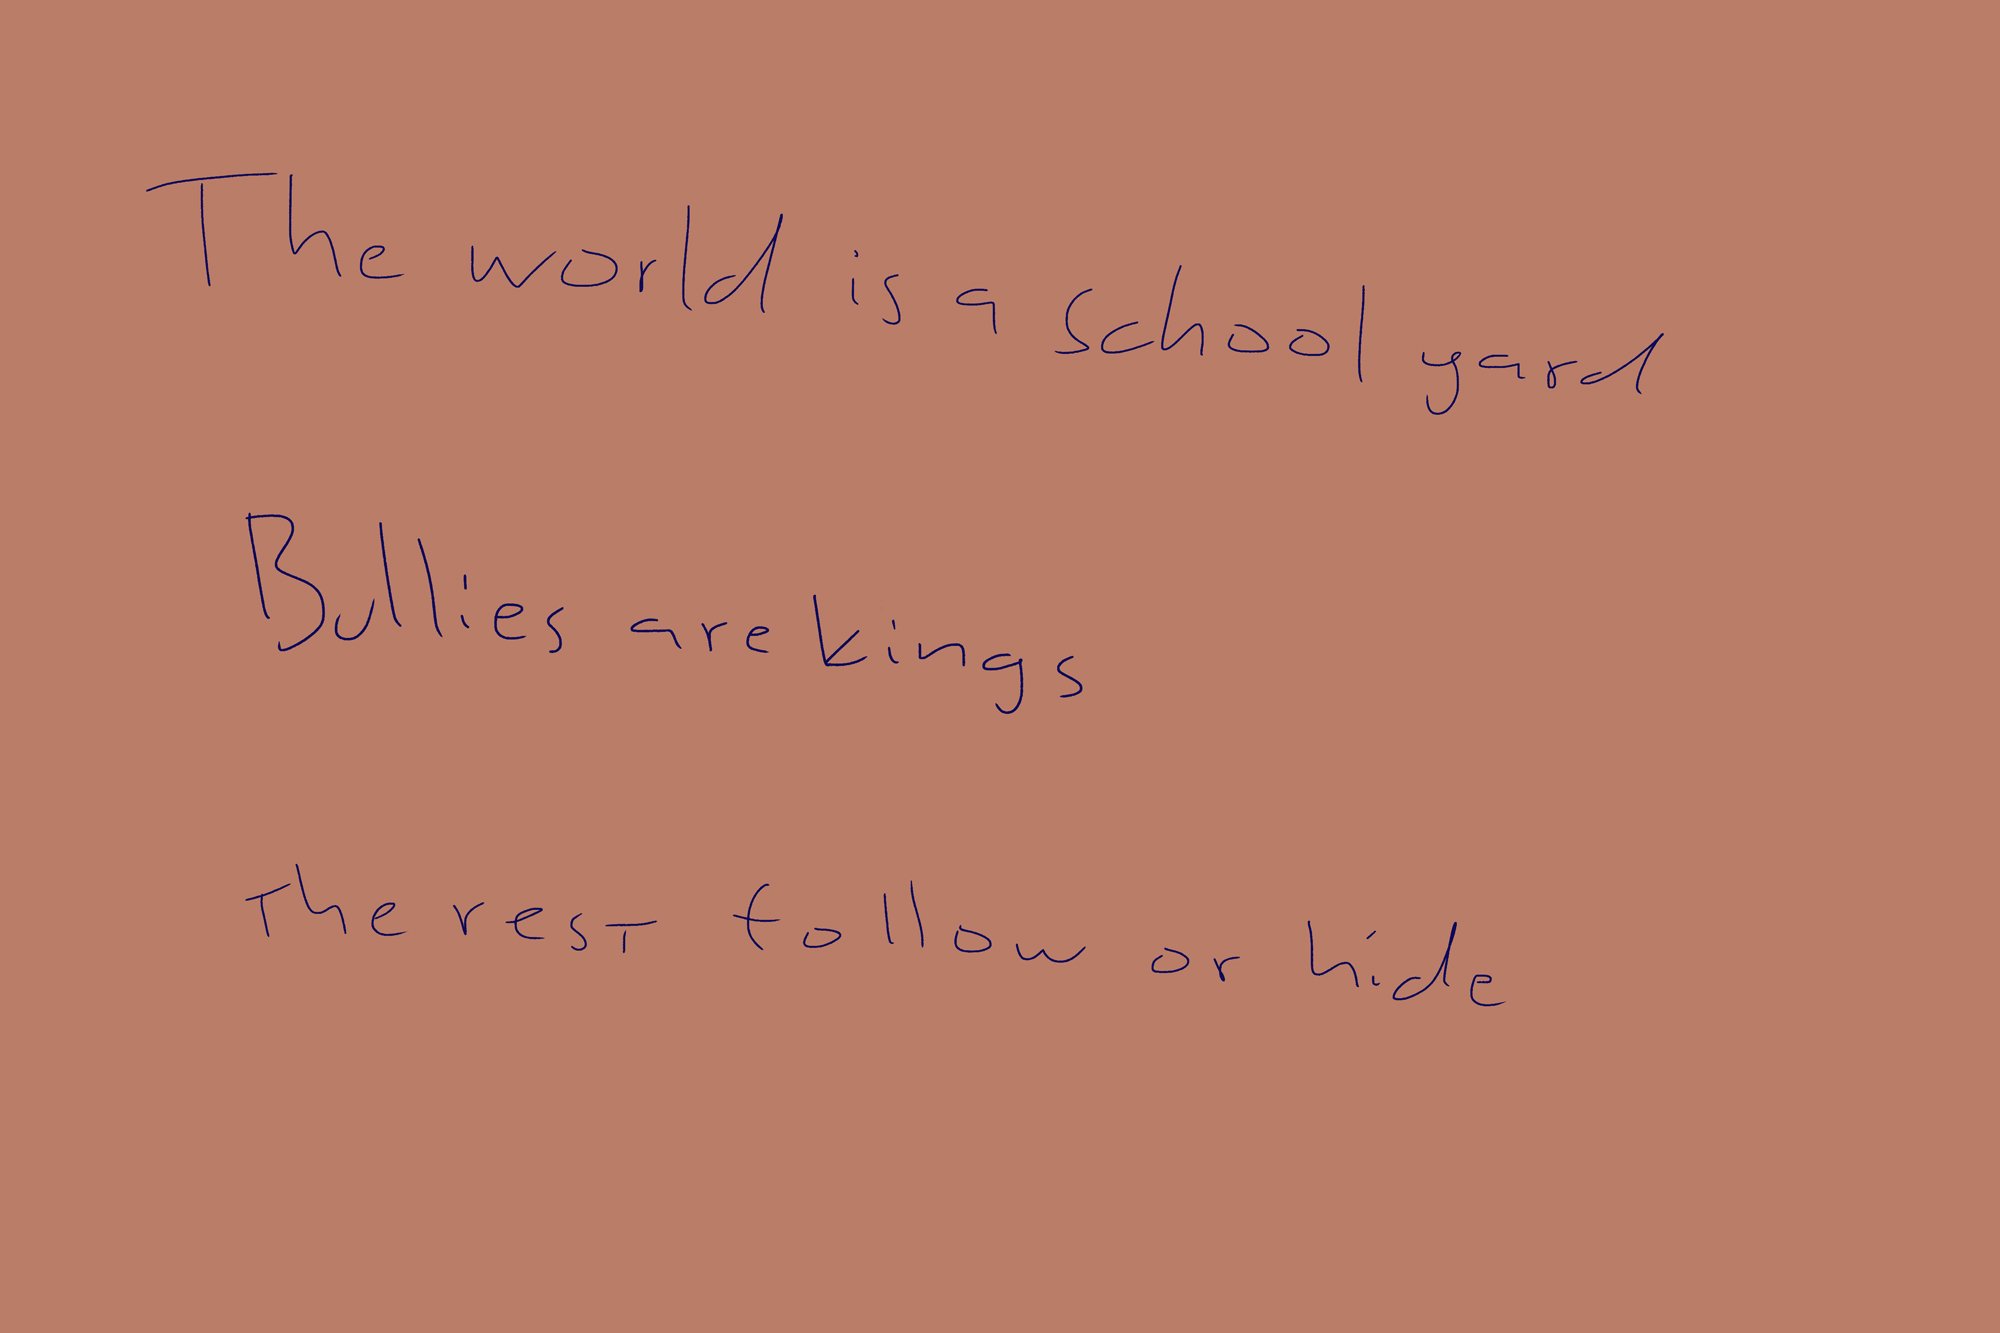 The world is a school yard
Bullies are kings
The rest follow or hide